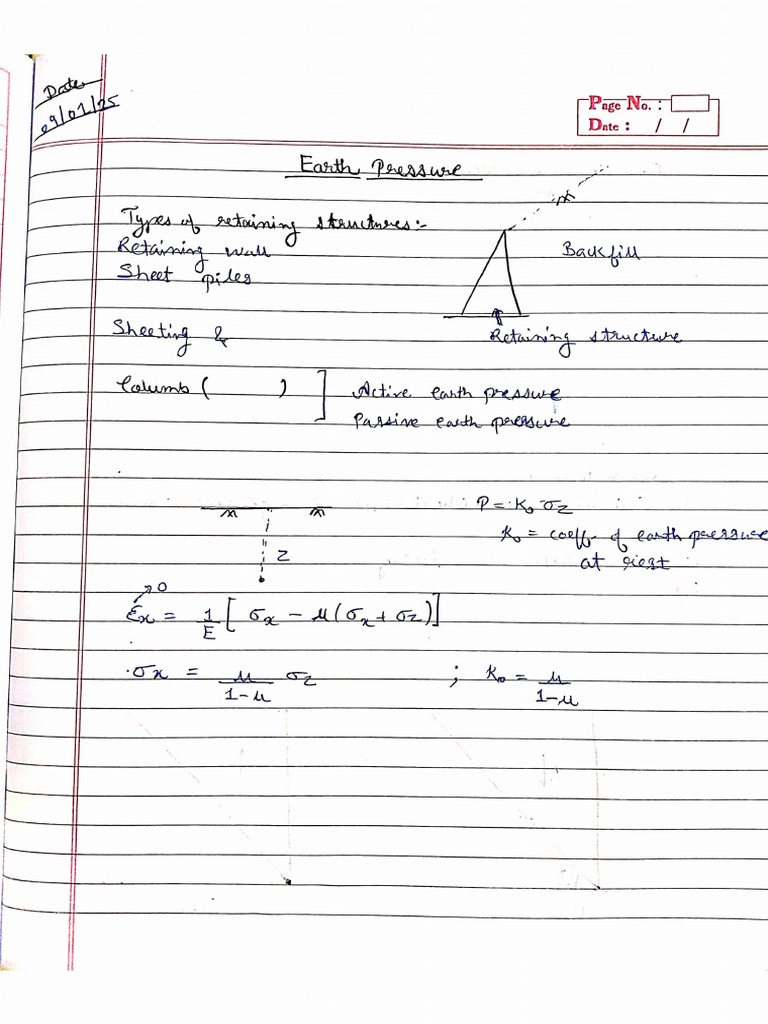 Date
09/01/25
Page No. :
Date : / /
Earth Pressure
Types of retaining structures:-
Retaining wall
Backfill
Sheet piles
Sheeting &
Retaining structure
Columb ( ) ] Active earth pressure
Passive earth pressure
P = K₀ σz
K₀ = coeff. of earth pressure
at rest
z
0
Ɛx = 1/E [ σx - μ(σx + σz)]
σx = μ/1-μ σz ; K₀ = μ/1-μ